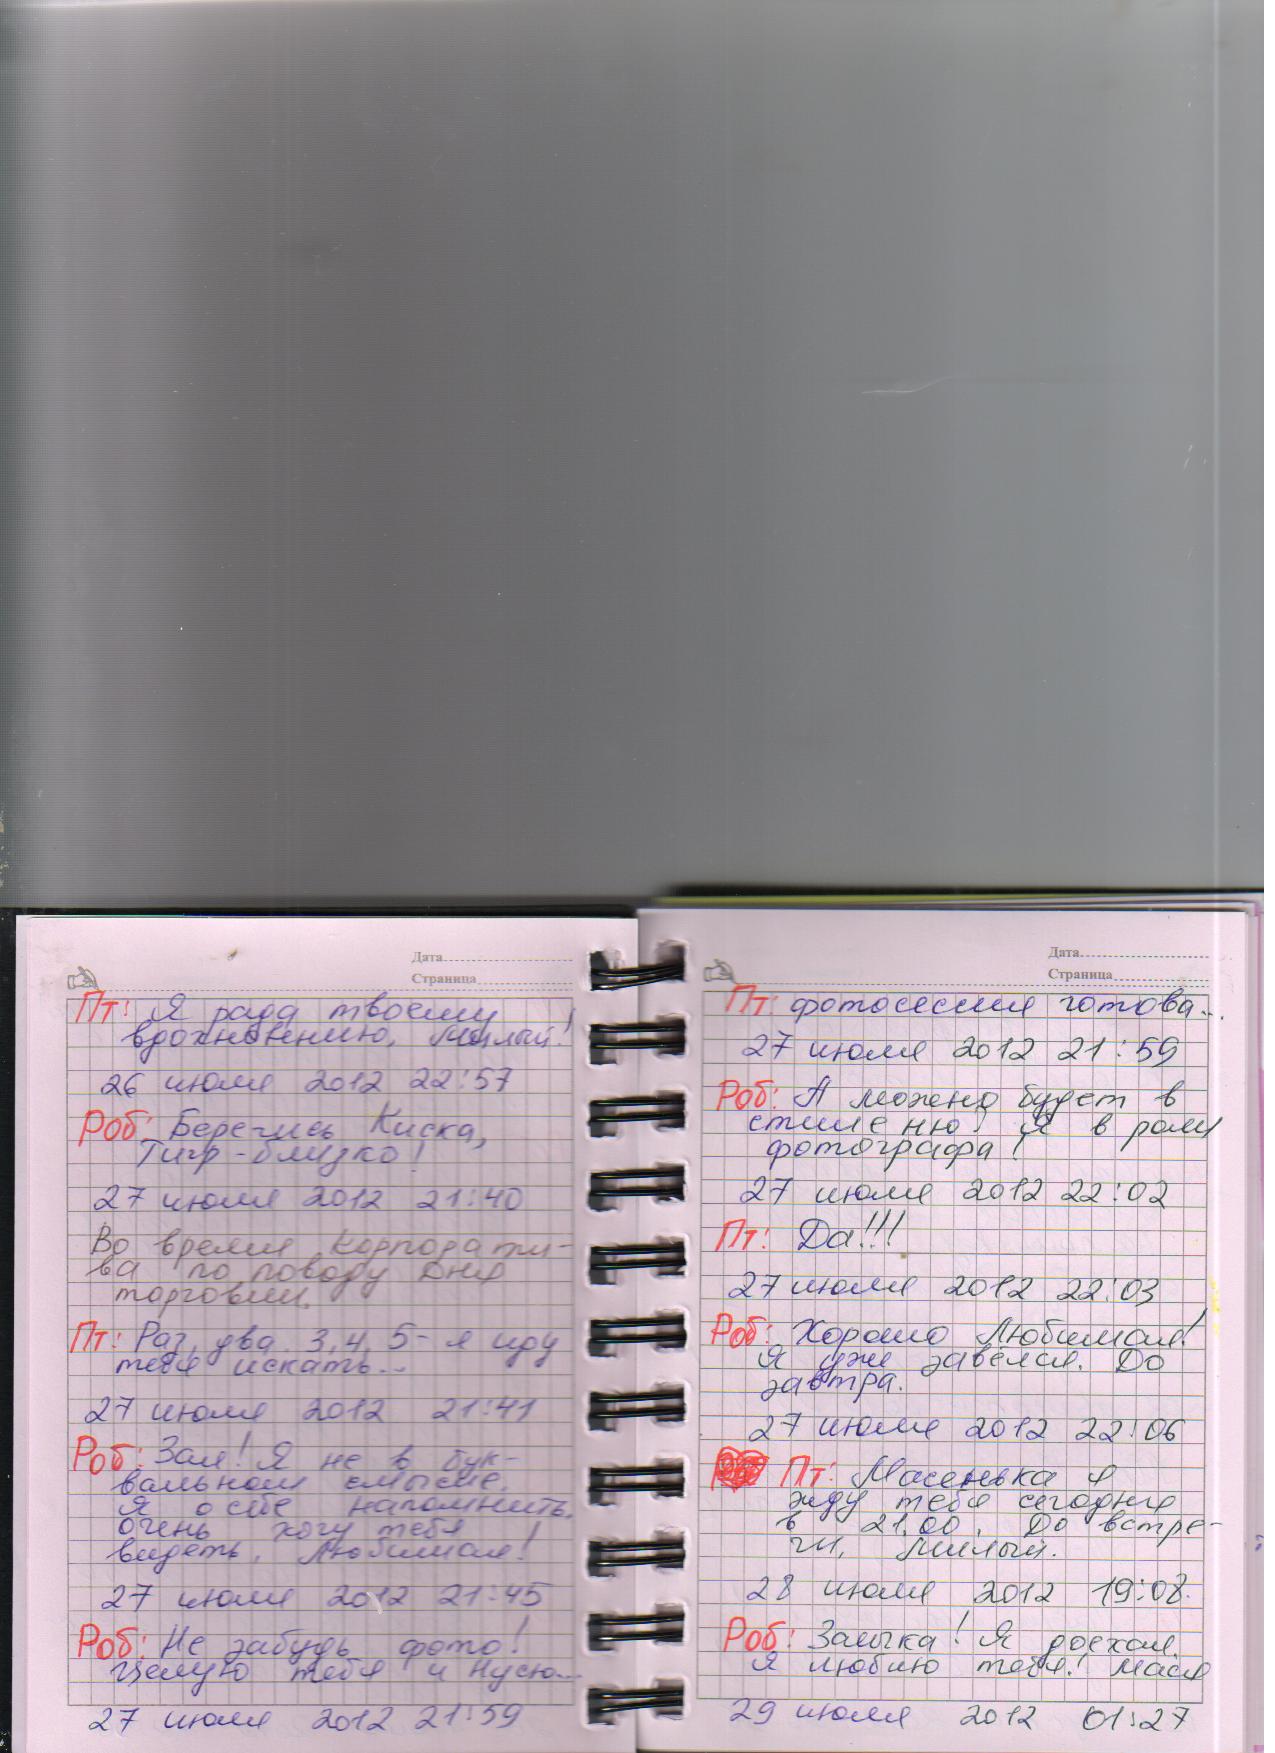 Дата
Страница
Пт: Я рада твоему
вдохновению, милый!
26 июля 2012 22:57
Роб: Берегись Киска,
Тигр-близко!
27 июля 2012 21:40
Во время корпорати-
ва по поводу Дня
торговли.
Пт: Раз, два 3, 4, 5 - я иду
тебя искать...
27 июля 2012 21:41
Роб: Зая! Я не в бук-
вальном смысле.
Я о себе напомнить.
очень хочу тебя
видеть, Любимая!
27 июля 2012 21:45
Роб: Не забудь фото!
Целую тебя и Нусю...
27 июля 2012 21:59
Дата
Страница
Пт: фотосессия готова...
27 июля 2012 21:59
Роб: А можно будет в
стиле ню? Я в роли
фотографа!
27 июля 2012 22:02
Пт: Да!!!
27 июля 2012 22:03
Роб: Хорошо Любимая!
Я уже завёлся. До
завтра.
27 июля 2012 22:06
Пт: Масенька я
жду тебя сегодня
в 21.00. До встре-
чи, милый.
28 июля 2012 19:08.
Роб: Заюка! Я доехал.
Я люблю тебя! Мася
29 июля 2012 01:27